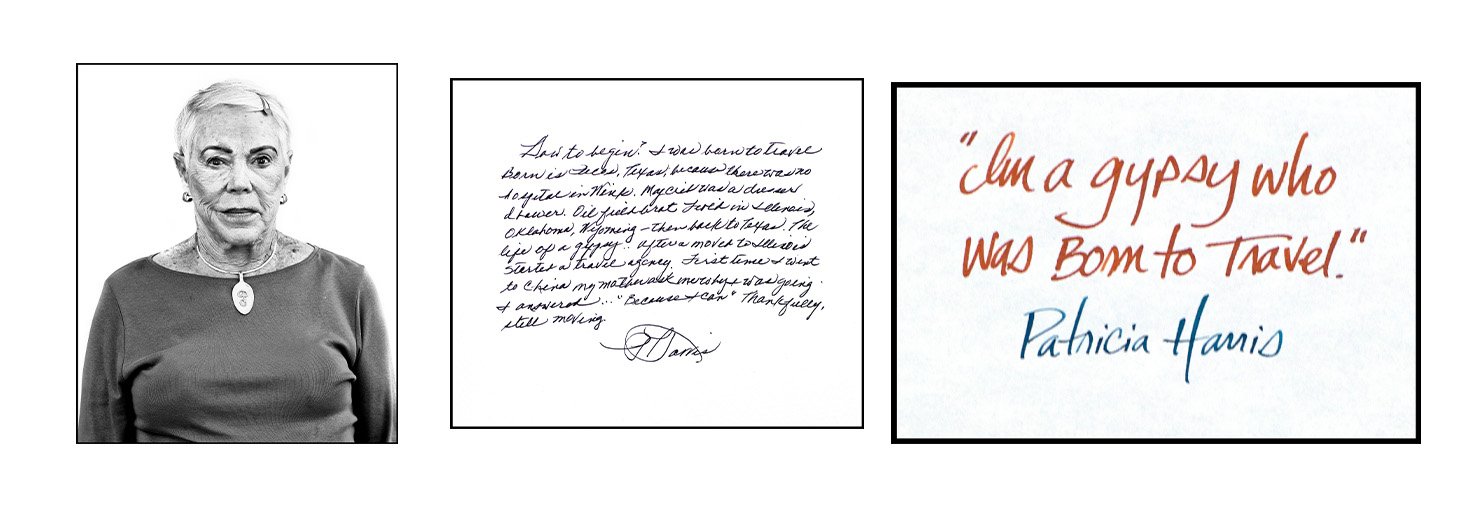 How to begin? I was born to travel
Born in Pecos, Texas, because there was no
hospital in Wink. My crib was a dresser
drawer. Oil field brat lived in Illinois,
Oklahoma, Wyoming - then back to Texas. The
life of a gypsy.. after a move to Illinois
started a travel agency. First time I went
to China my mother ask me why I was going
I answered... "Because I can" Thankfully,
still moving.
P Harris
"I'm a gypsy who
was Born to Travel."
Patricia Harris